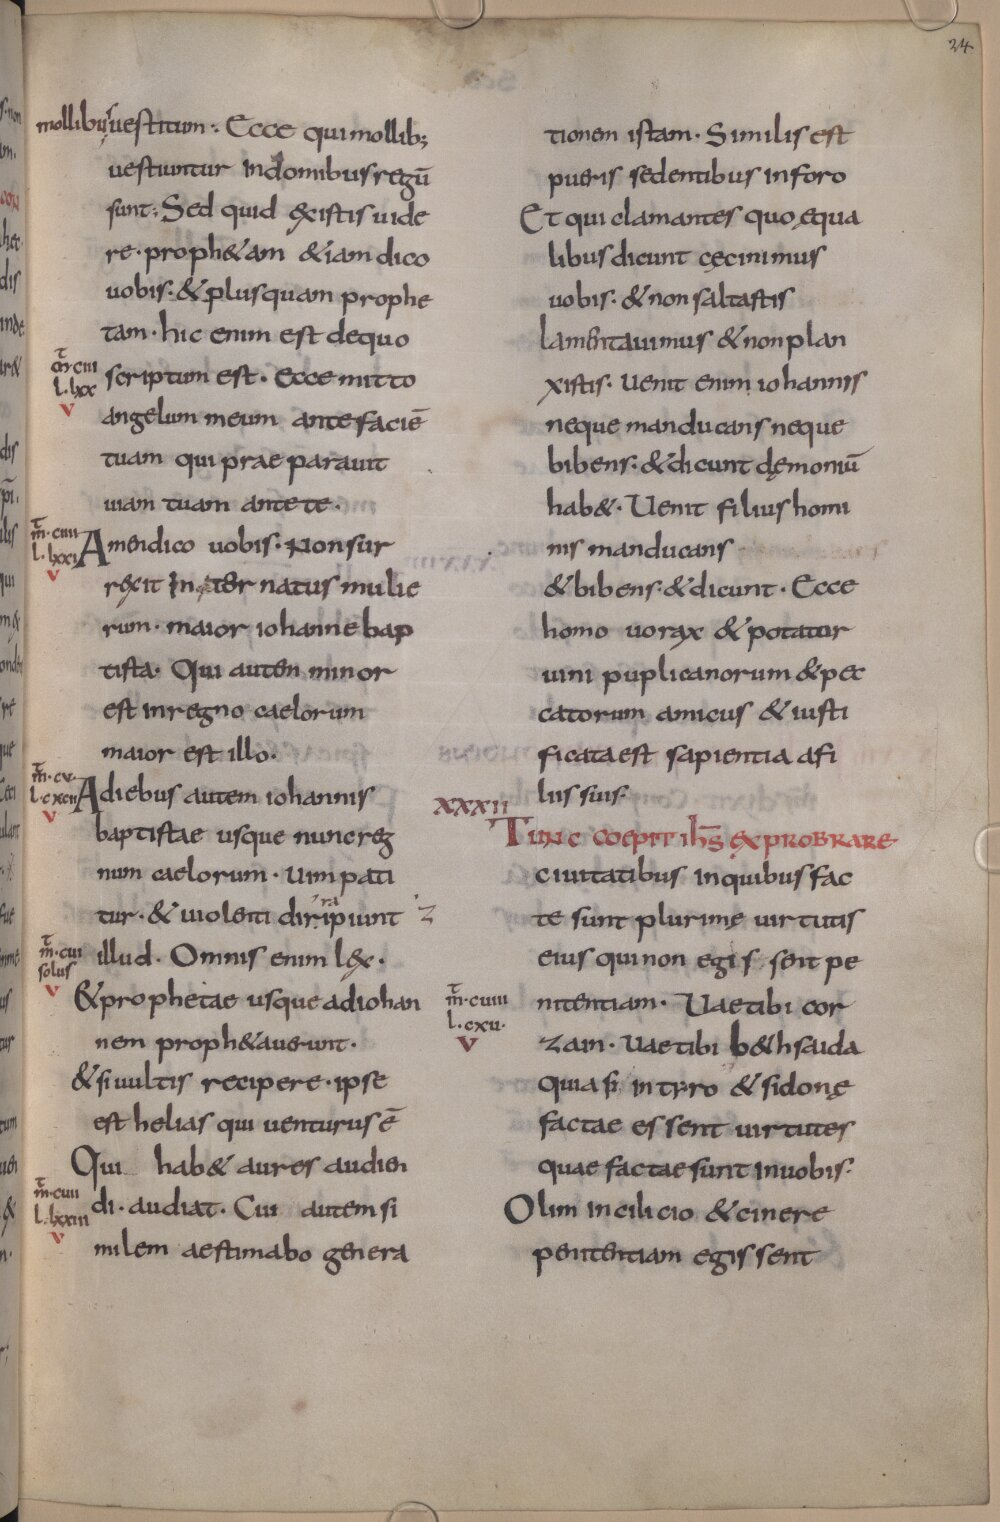 24
mollibus uestitum·: Ecce qui mollib;
uestiuntur in domibus regū
sunt; Sed quid existis uide
re· prophetam & iam dico
uobis·: & plus quam prophe
tam· hic enim est de quo
m̄ ciii
l· lxx
v
scriptum est· Ecce mitto
angelum meum ante faciē
tuam qui prae parauit
uiam tuam ante te·
m̄·ciiii
l· lxxi
v
Amen dico uobis· Non sur
rexit inter natus mulie
rum· maior iohanne bap
tista· Qui autem minor
est in regno caelorum
maior est illo·
m̄·cv·
l·cxcii
v
A diebus autem iohannis
baptistae usque nunc reg
num caelorum· uim pati
tur· & uiolenti diripiunt
ra
illud· Omnis enim lex·
m̄·cui
solus
v
& prophetae usque ad iohan
nem proph&auerunt·
& si uultis recipere· ipse
est helias qui uenturus ē
Qui hab& aures audien
m̄·cuii
l· lxxiii
v
di· audiat· Cui autem si
milem aestimabo genera
tionem istam· Similis est
pueris sedentibus in foro
Et qui clamantes quo ęqua
libus dicunt cęcinimus
uobis· & non saltastis
lamentauimus & non plan
xistis· Uenit enim iohannis
neque manducans neque
bibens· & dicunt dęmoniū
hab&· Uenit filius homi
nis manducans
& bibens· & dicunt· Ecce
homo uorax & potatur
uini puplicanorum & pec
catorum amicus & iusti
ficata est sapientia a fi
liis suis·
XXXII
Tunc coepit ihs̄ exprobrare
ciuitatibus in quibus fac
te sunt plurimę uirtutis
eius qui non egissent pe
m̄·cuiii
l·cxu·
v
nitentiam· Uae tibi cor
zam· uae tibi b&hsaida
quia si in tyro & sidonę
factae essent uirtutes
quae factae sunt in uobis·
Olim in cilicio & cinere
penitentiam egissent